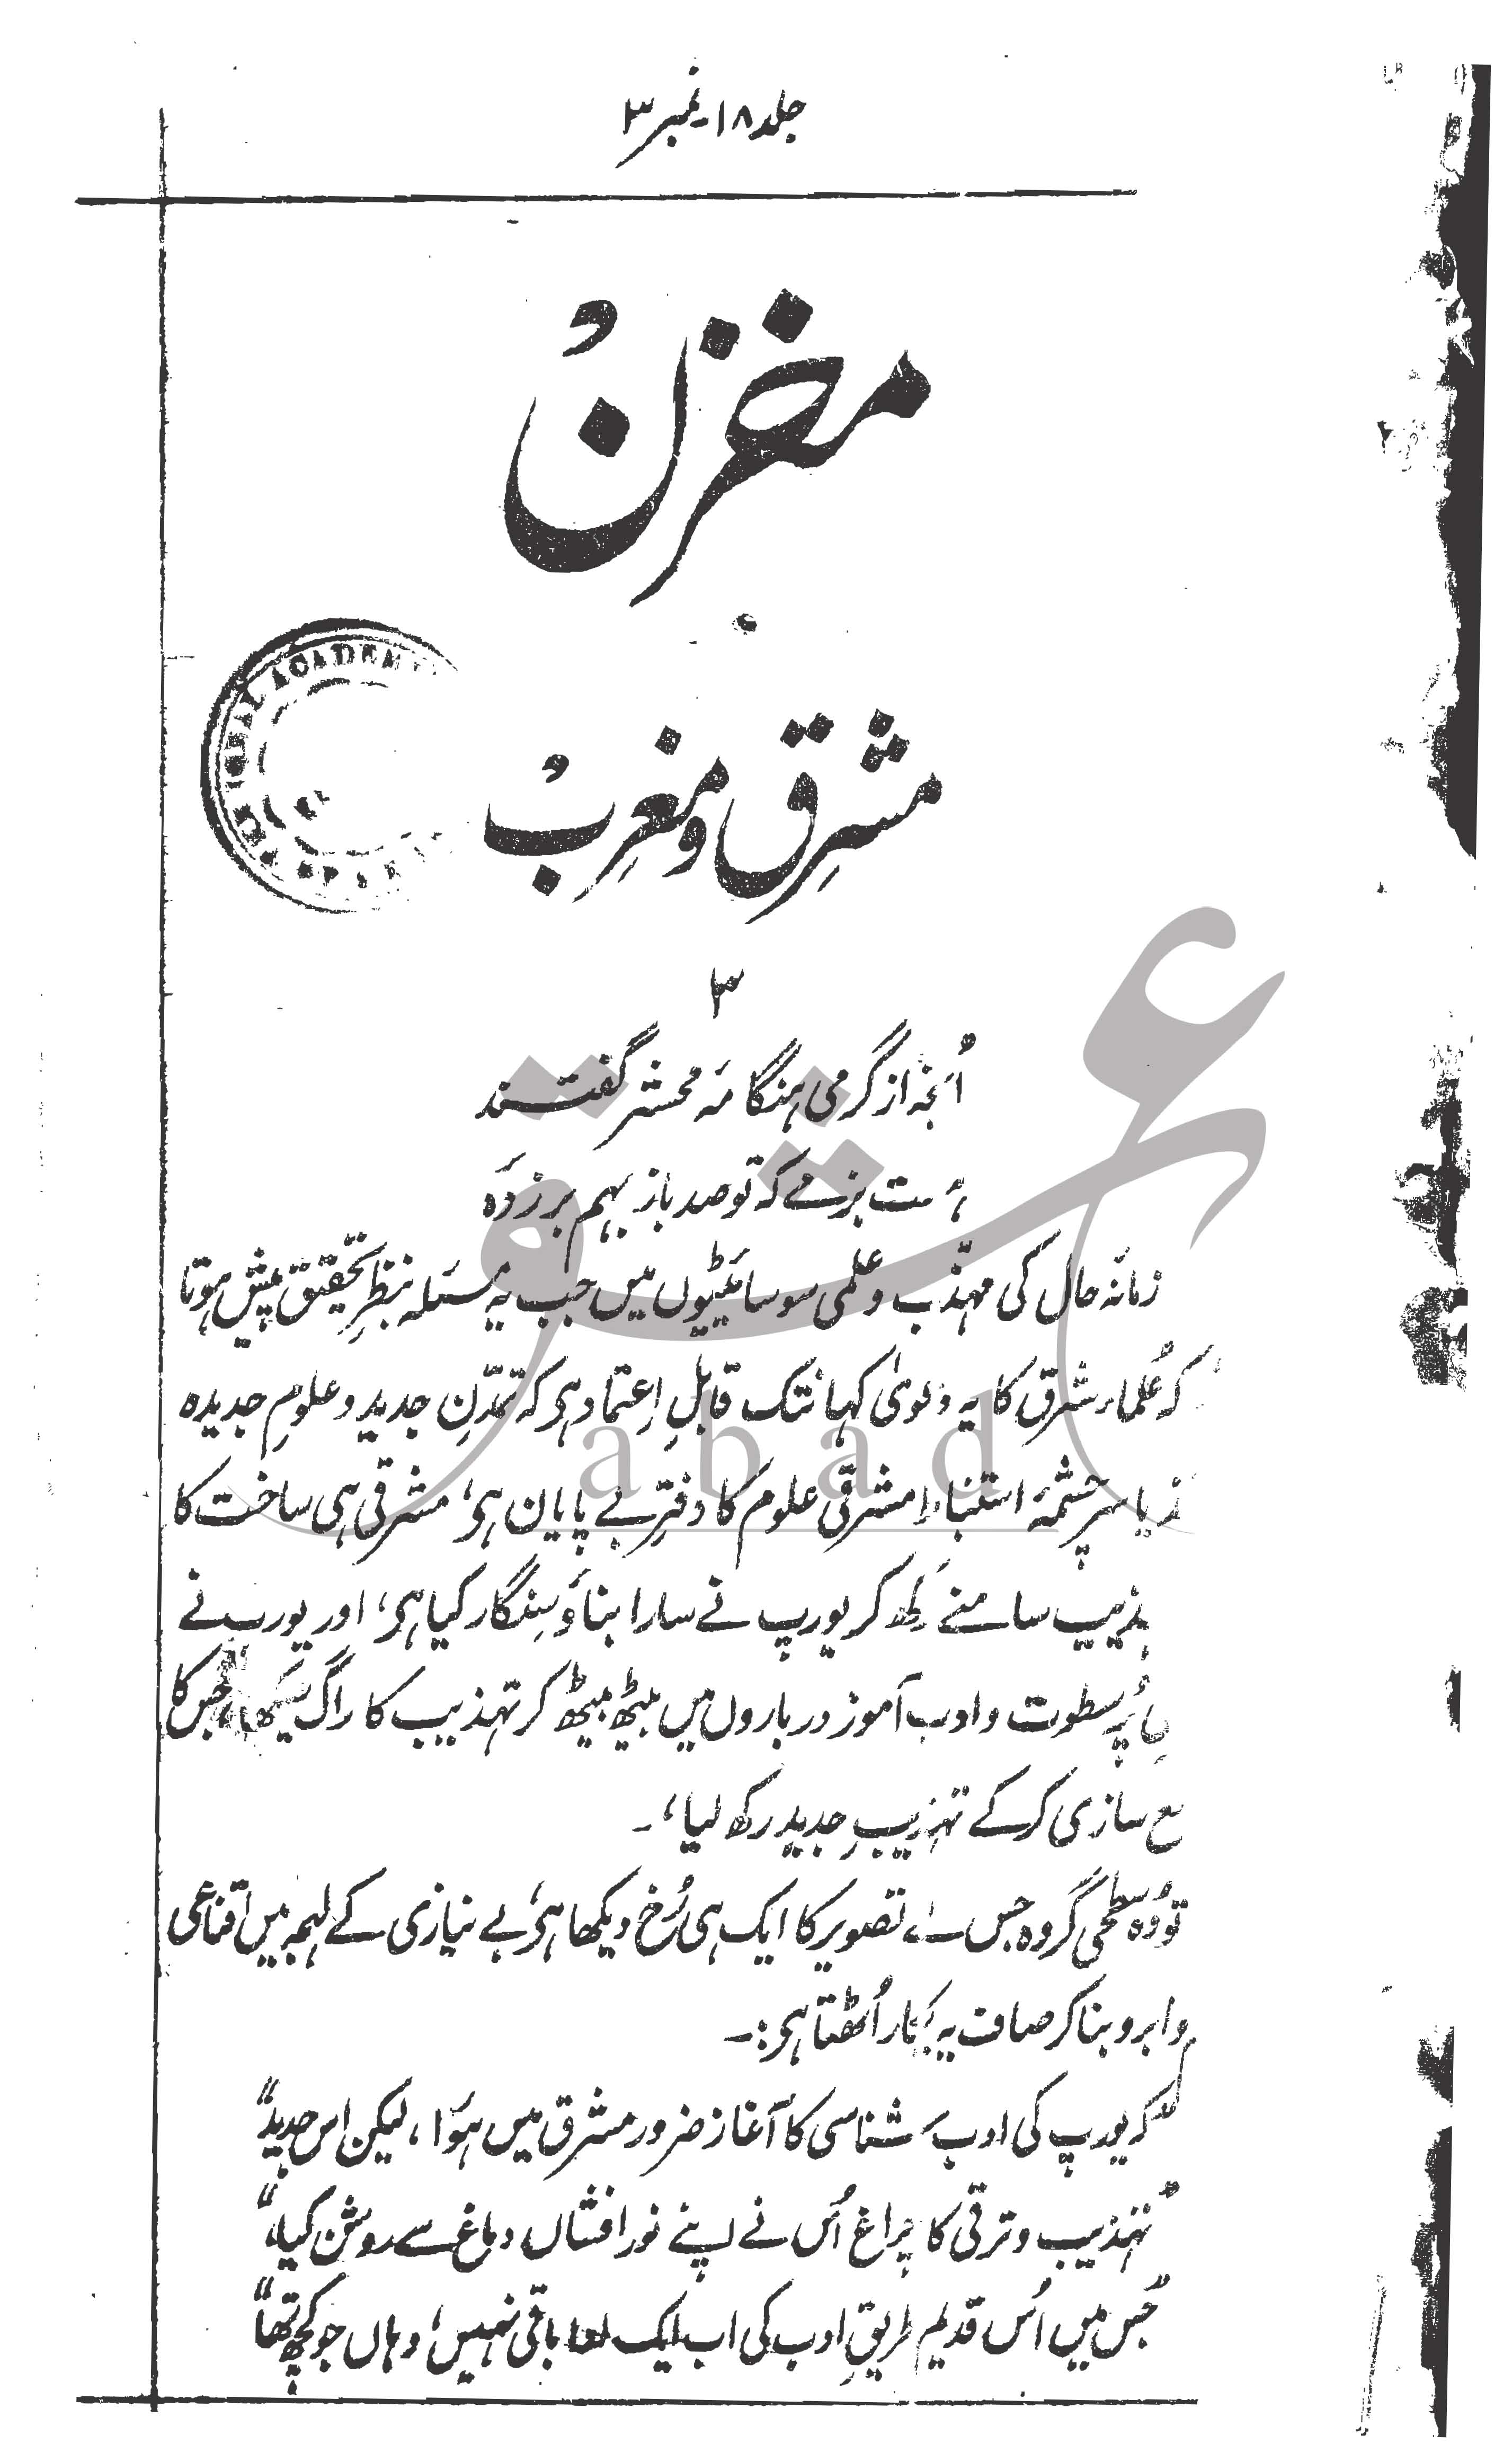 جلد ۱۸۔نمبر ۳
مخزن
مشرق و مغرب
۳
انچہ از گرمی ہنگامۂ محشر گفتند
ہست بزمے کہ تو صد بار بہم برزدۂ
زمانۂ حال کی مہذّب و علمی سوسائیٹیوں میں جب یہ مسئلہ بنظرِ تحقیق پیش ہوتا
کہ عُلماء شرق کا یہ دعویٰ کہانتک قابلِ اِعتماد ہی کہ تمدّنِ جدید و علومِ جدیدہ
یا سرچشمۂ استنباط مشرقی علوم کا دفترِ بے پایان ہی، مشرقی ہی ساخت کا
سامنے رکھ کر یورپ نے سارا بناؤ سِنگار کیا ہی، اور یورپ نے
پُرسطوت و ادب آموز درباروں میں بیٹھ بیٹھ کر تہذیب کا راگ سیکھا، جس کا
سازی کرکے تہذیبِ جدید رکھ لیا،۔
تو وُہ سطحی گروہ جس نے تصویر کا ایک ہی رُخ دیکھا ہی، بے نیازی کے لہجہ میں اقناعی
و ابرو بنا کر صاف یہ پُکار اُٹھتا ہی:۔
کہ یورپ کی ادب شناسی کا آغاز ضرور مشرق میں ہوَا، لیکن اس جدید"
"تہذیب و ترقی کا چراغ اُس نے اپنے نور افشاں دماغ سے روشن کیا،"
"جس میں اُس قدیم طریقِ ادب کی اب ایک ادا باقی نہیں، وہاں جو کچھ تھا"
ACADEMY
عتیق
abad